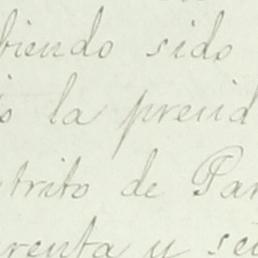 biendo sido
o la presid
trito de Par
renta y sei